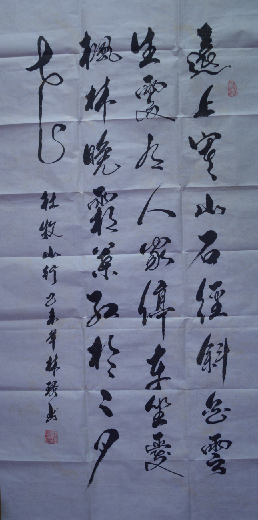 遠上寒山石徑斜白雲
生處有人家停車坐愛
楓林晚霜葉紅於二月
花
杜牧山行未年林书